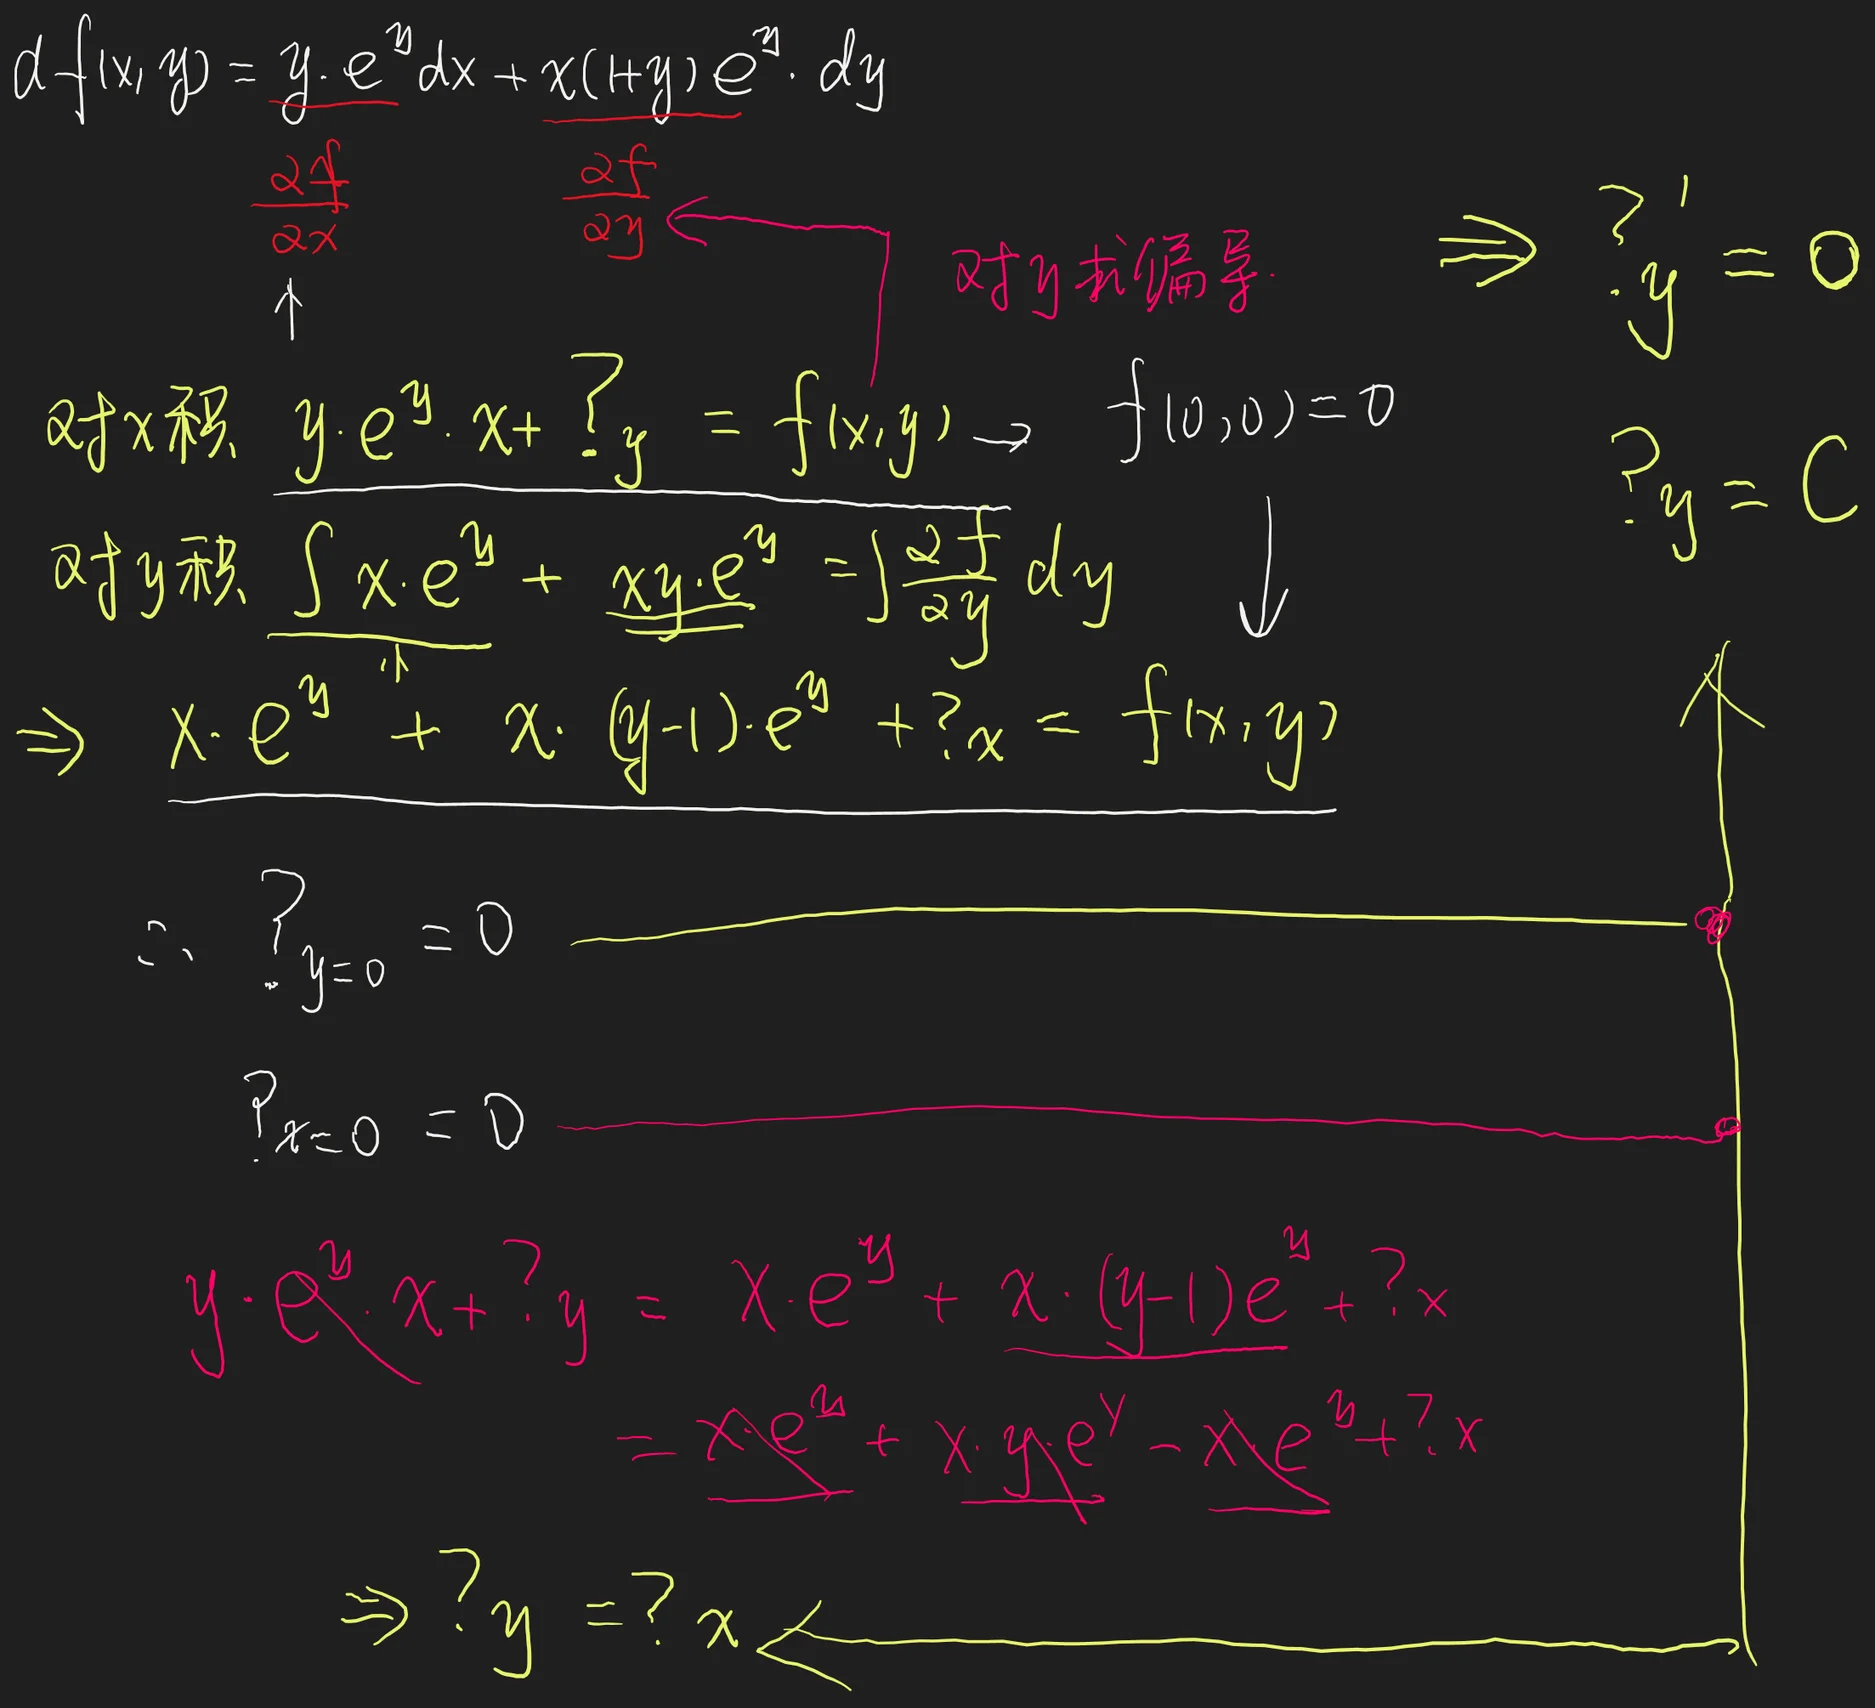 d f(x, y) = y·e^y dx + x(1+y) e^y · dy
∂f/∂x ∂f/∂y
对y求偏导.
⇒ ?'y = 0
对x积 y·e^y·x + ?y = f(x, y) → f(0, 0) = 0
?y = C
对y积 ∫ x·e^y + xy·e^y = ∫ ∂f/∂y dy
⇒ x·e^y + x·(y-1)·e^y + ?x = f(x, y)
∴ ?y=0 = 0
?x=0 = 0
y·e^y·x + ?y = x·e^y + x·(y-1)e^y + ?x
= x·e^y + x·y·e^y - x·e^y + ?x
⇒ ?y = ?x